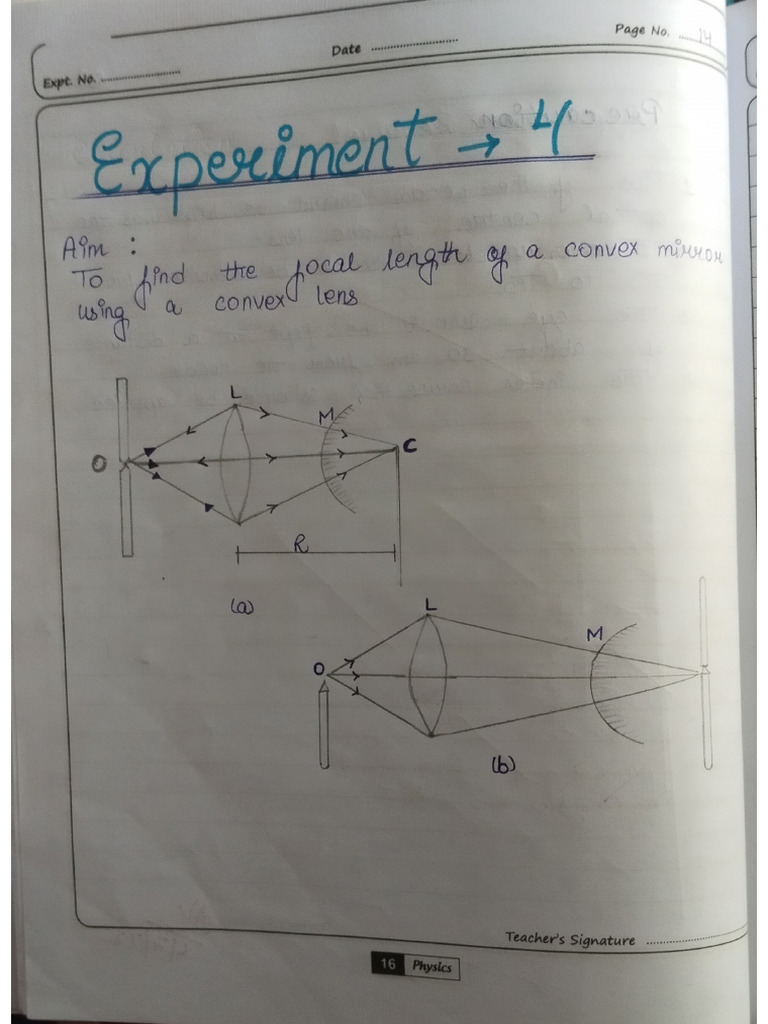 Page No. ..... 14
Date ........................
Expt. No. ........................
Experiment → 4
Aim :
To find the focal length of a convex mirror
using a convex lens
L
M
O
C
R
(a)
L
M
O
(b)
Teacher's Signature ........................
16 Physics